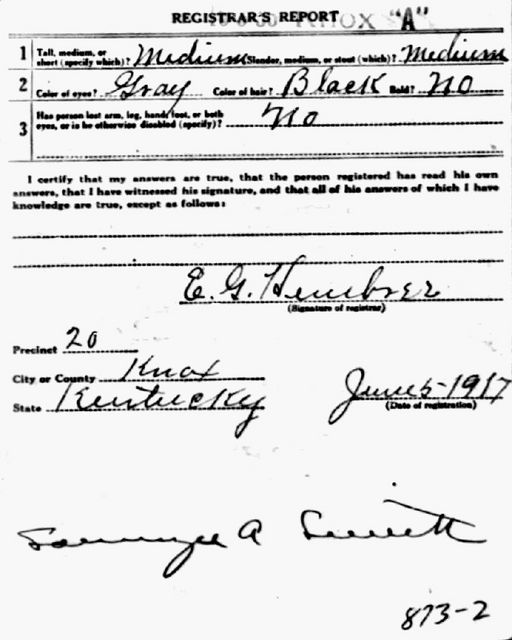 REGISTRAR'S REPORT KNOX "A"
1 Tall, medium, or short (specify which)? Medium Slender, medium, or stout (which)? Medium
2 Color of eyes? Gray Color of hair? Black Bald? No
3 Has person lost arm, leg, hand, foot, or both eyes, or is he otherwise disabled (specify)? No
I certify that my answers are true, that the person registered has read his own
answers, that I have witnessed his signature, and that all of his answers of which I have
knowledge are true, except as follows:
E. G.
(Signature of registrar)
Precinct 20
City or County Knox
State Kentucky
June 5-1917
(Date of registration)
A
873-2